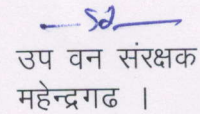 उप वन संरक्षक
महेन्द्रगढ ।